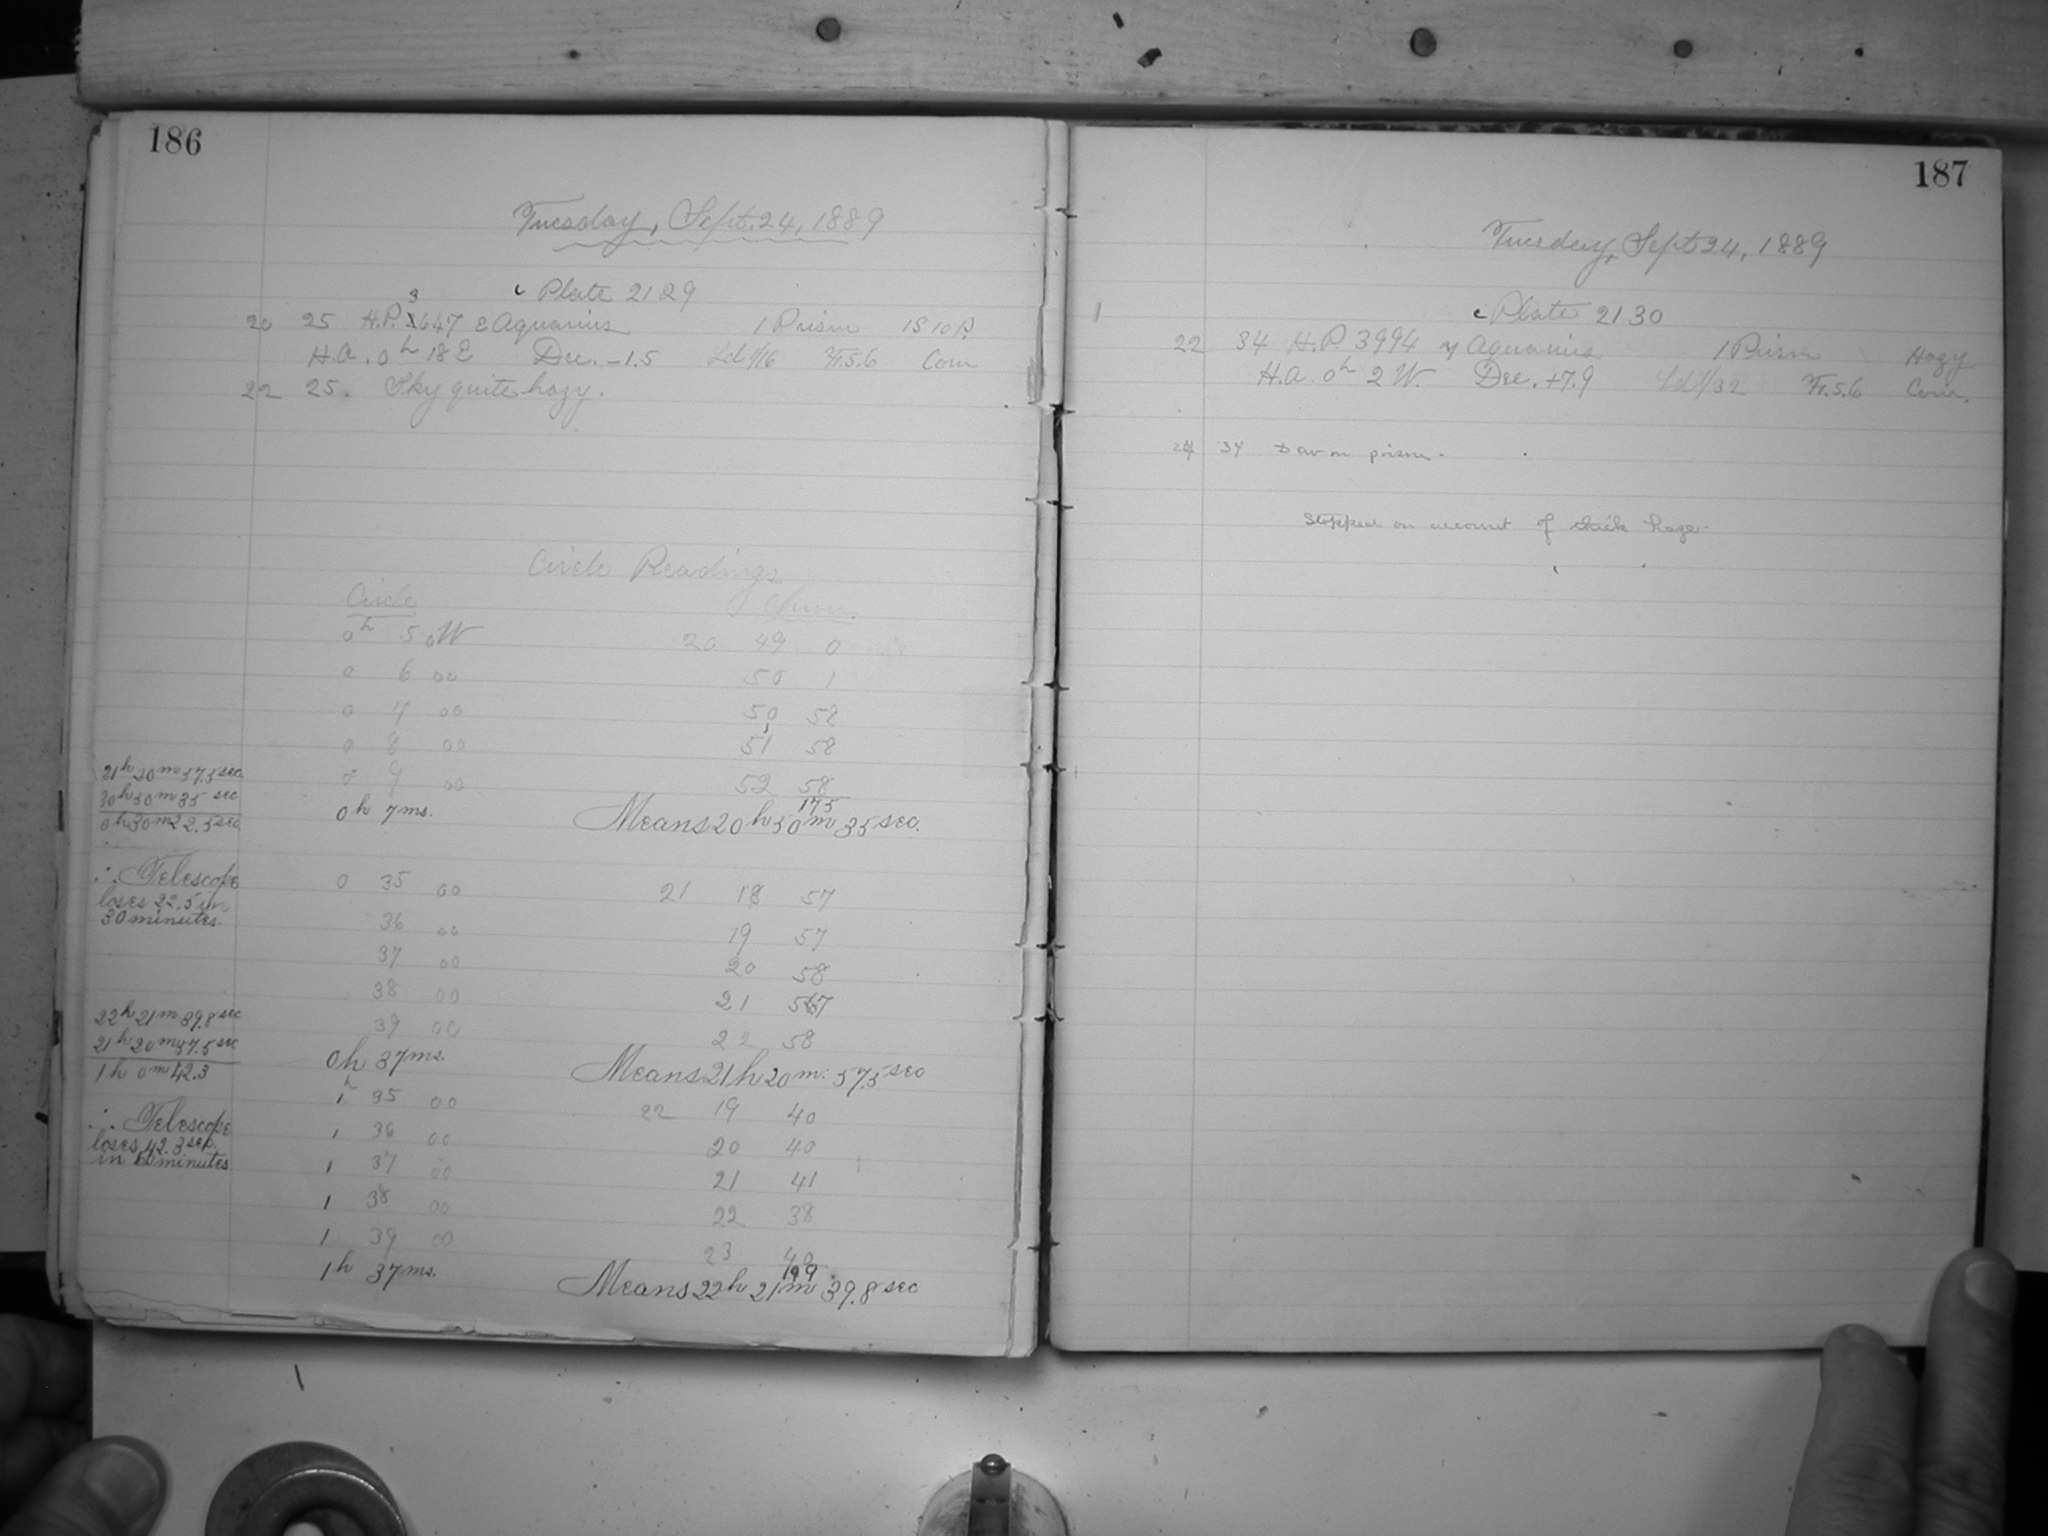 186
Tuesday, Sept. 24, 1889
c Plate 2129
3
20 25 H.P. 1647 ε Aquarius 1 Prism 1S 10P.
H.A. 0h 18 E Dec. -1.5 Ld 1/16 Fr. 5.6 Com
22 25. Sky quite hazy.
Circle Readings
Circle Chron.
0h 5 0W 20 49 0
0 6 00 50 1
0 7 00 50 58
0 8 00 51 58
0 9 00 52 58
175
0h 7ms. Means 20h 50m 35sec.
21h 20m 57.5sec
20h 50m 35 sec
0h 30m 22.5sec
∴ Telescope
loses 22.5 in
30 minutes.
0 35 00 21 18 57
36 00 19 57
37 00 20 58
38 00 21 57
39 00 22 58
0h 37ms. Means 21h 20m: 57.5sec
22h 21m 39.8sec
21h 20m 57.5sec
1h 0m 42.3
∴ Telescope
loses 42.3 sec.
in 60 minutes
1h 35 00 22 19 40
1 36 00 20 40
1 37 00 21 41
1 38 00 22 38
1 39 00 23 40
199
1h 37ms. Means 22h 21m 39.8sec
187
Tuesday, Sept 24, 1889
c Plate 2130
22 34 H.P. 3994 η Aquarius 1 Prism Hazy
H.A. 0h 2 W. Dec. +7.9 Ld 1/32 Fr. 5.6 Com.
24 34 Daw on prism.
Stopped on account of thick haze.